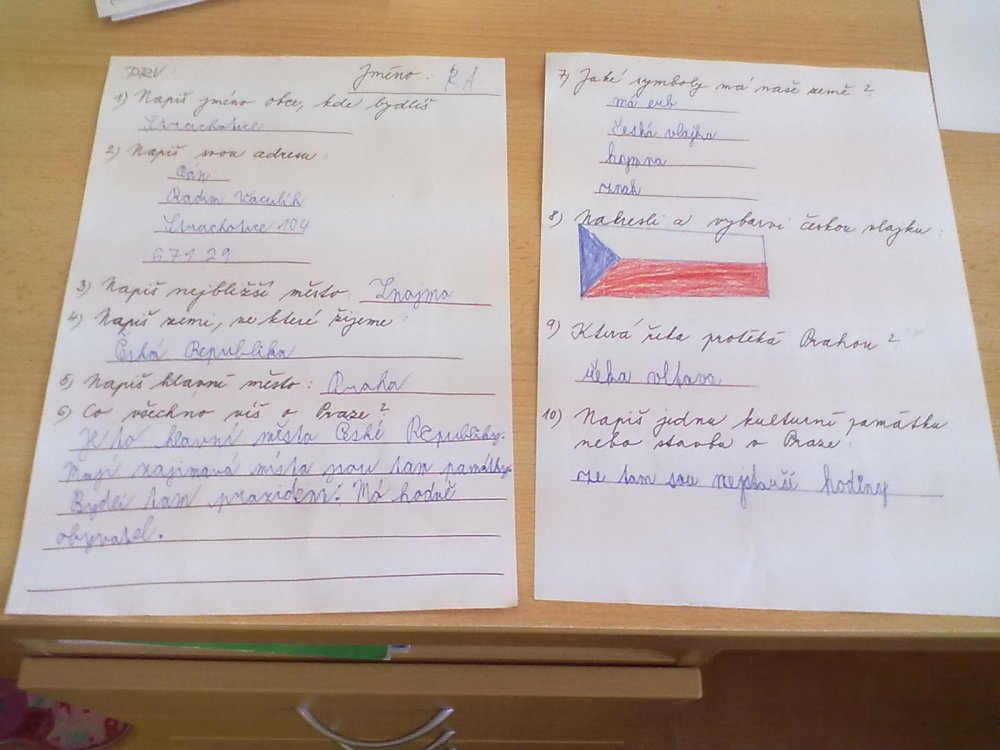 PRV
Jméno: RA
1) Napiš jméno obce, kde bydlíš
Strachotice
2) Napiš svou adresu:
Pán
Radim Vaculík
Strachotice 104
671 29
3) Napiš nejbližší město: Znojmo
4) Napiš zemi, ve které žijeme:
Čská Republika
5) Napiš hlavní město: Praha
6) Co všechno víš o Praze?
Je to hlavní města České Republiky.
Mají zajimavá místa jsou tan památky.
Bydlí tam prezident. Má hodně
obyvatel.
7) Jaké symboly má naše země?
má erb
česká vlajka
hymna
znak
8) Nakresli a vybarvi českou vlajku:
9) Která řeka protéká Prahou?
řeka vltava
10) Napiš jednu kulturní památku
nebo stavbu v Praze:
že tam sou nejstarší hodiny